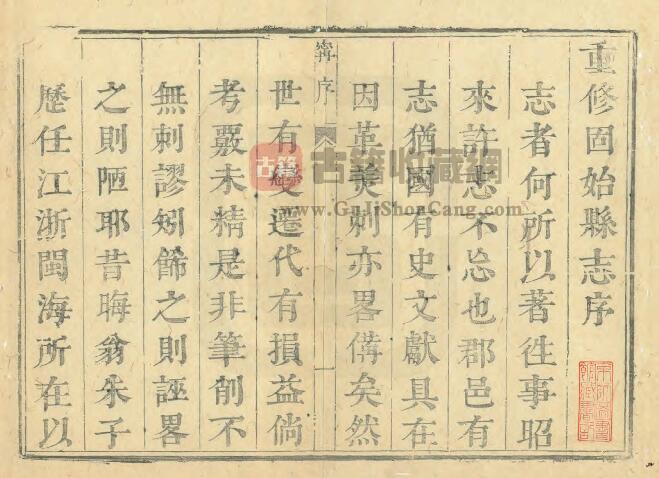 重修固始縣志序
志者何所以著徃事昭
來許志不忘也郡邑有
志猶國有史文獻具在
因革美刺亦畧備矣然
寗序
世有變遷代有損益倘
考覈未精是非筆削不
無刺謬矧餙之則誣畧
之則陋耶昔晦翁朱子
歷任江浙閩海所在以
古籍
古籍收藏網
www.GuJiShouCang.com